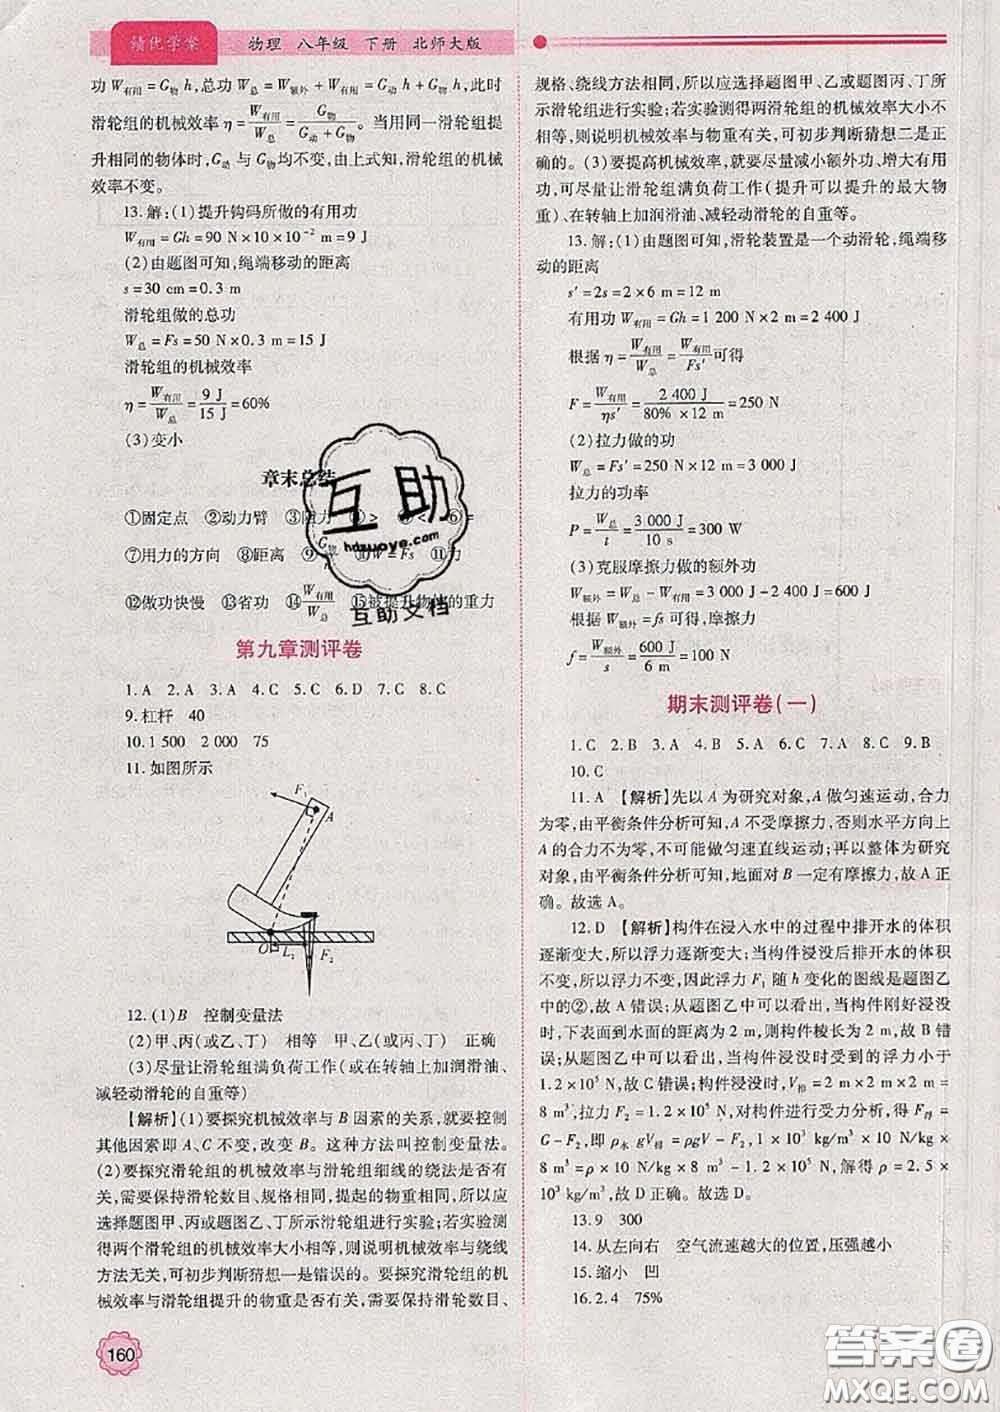 绩优学案
物理 八年级 下册 北师大版
功 W有用=G物 h,总功 W总=W额外+W有用=G动 h+G物 h,此时
滑轮组的机械效率 η=W有用/W总=G物/(G动+G物)。当用同一滑轮组提
升相同的物体时,G动 与 G物均不变,由上式知,滑轮组的机械
效率不变。
13.解:(1)提升钩码所做的有用功
W有用=Gh=90 N×10×10⁻² m=9 J
(2)由题图可知,绳端移动的距离
s=30 cm=0.3 m
滑轮组做的总功
W总=Fs=50 N×0.3 m=15 J
滑轮组的机械效率
η=W有用/W总=9 J/15 J=60%
(3)变小
章末总结
①固定点 ②动力臂 ③阻力 > < ⑥=
⑦用力的方向 ⑧距离 ⑨ G物 W=Fs ⑪力
⑫做功快慢 ⑬省功 ⑭W有用/W总 ⑮被提升物体的重力
第九章测评卷
1.A 2.A 3.A 4.C 5.C 6.D 7.C 8.C
9.杠杆 40
10.1 500 2 000 75
11.如图所示
F₁
A
O
L₂
F₂
12.(1)B 控制变量法
(2)甲、丙(或乙、丁) 相等 甲、乙(或丙、丁) 正确
(3)尽量让滑轮组满负荷工作(或在转轴上加润滑油、
减轻动滑轮的自重等)
【解析】(1)要探究机械效率与 B 因素的关系,就要控制
其他因素即 A、C 不变,改变 B。这种方法叫控制变量法。
(2)要探究滑轮组的机械效率与滑轮组细线的绕法是否有
关,需要保持滑轮数目、规格相同,提起的物重相同,所以应
选择题图甲、丙或题图乙、丁所示滑轮组进行实验;若实验测
得两个滑轮组的机械效率大小相等,则说明机械效率与绕线
方法无关,可初步判断猜想一是错误的。要探究滑轮组的机
械效率与滑轮组提升的物重是否有关,需要保持滑轮数目、
160
规格、绕线方法相同,所以应选择题图甲、乙或题图丙、丁所
示滑轮组进行实验;若实验测得两滑轮组的机械效率大小不
相等,则说明机械效率与物重有关,可初步判断猜想二是正
确的。(3)要提高机械效率,就要尽量减小额外功、增大有用
功,可尽量让滑轮组满负荷工作(提升可以提升的最大物
重)、在转轴上加润滑油、减轻动滑轮的自重等。
13.解:(1)由题图可知,滑轮装置是一个动滑轮,绳端移
动的距离
s′=2s=2×6 m=12 m
有用功 W有用=Gh=1 200 N×2 m=2 400 J
根据 η=W有用/W总=W有用/Fs′可得
F=W有用/ηs′=2 400 J/(80%×12 m)=250 N
(2)拉力做的功
W总=Fs′=250 N×12 m=3 000 J
拉力的功率
P=W总/t=3 000 J/10 s=300 W
(3)克服摩擦力做的额外功
W额外=W总-W有用=3 000 J-2 400 J=600 J
根据 W额外=fs 可得,摩擦力
f=W额外/s=600 J/6 m=100 N
期末测评卷(一)
1.C 2.B 3.A 4.B 5.A 6.C 7.A 8.C 9.B
10.C
11.A 【解析】先以 A 为研究对象,A 做匀速运动,合力
为零,由平衡条件分析可知,A 不受摩擦力,否则水平方向上
A 的合力不为零,不可能做匀速直线运动;再以整体为研究
对象,由平衡条件分析可知,地面对 B 一定有摩擦力,故 A 正
确。故选 A。
12.D 【解析】构件在浸入水中的过程中排开水的体积
逐渐变大,所以浮力逐渐变大;当构件浸没后排开水的体积
不变,所以浮力不变,因此浮力 F₁ 随 h 变化的图线是题图乙
中的②,故 A 错误;从题图乙中可以看出,当构件刚好浸没
时,下表面到水面的距离为 2 m,则构件棱长为 2 m,故 B 错
误;从题图乙中可以看出,当构件浸没时受到的浮力小于
1.2×10⁵ N,故 C 错误;构件浸没时,V排=2 m×2 m×2 m=
8 m³,拉力 F₂=1.2×10⁵ N,对构件进行受力分析,得 F浮=
G-F₂,即 ρ水 gV排=ρgV-F₂,1×10³ kg/m³×10 N/kg×
8 m³=ρ×10 N/kg×8 m³-1.2×10⁵ N,解得 ρ=2.5×
10³ kg/m³,故 D 正确。故选 D。
13.9 300
14.从左向右 空气流速越大的位置,压强越小
15.缩小 凹
16.2.4 75%
互助
hdzuoye.com
互助文档
答案卷
MXQE.COM